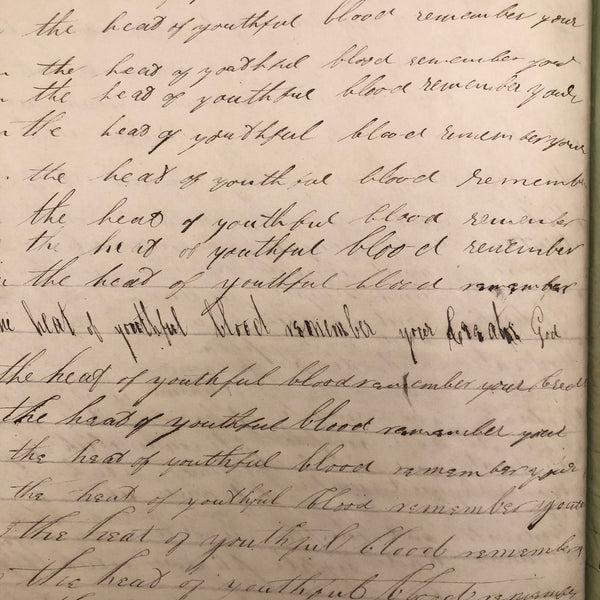 the heat of youthful blood remember your
the heat of youthful blood remember your
the heat of youthful blood remember your
the heat of youthful blood remember your
the heat of youthful blood remember
the heat of youthful blood remember
the heat of youthful blood remember
the heat of youthful blood remember
heat of youthful blood remember your God
the heat of youthful blood remember your
the heat of youthful blood remember your
the heat of youthful blood remember your
the heat of youthful blood remember your
the heat of youthful blood remember
the heat of youthful blood remember